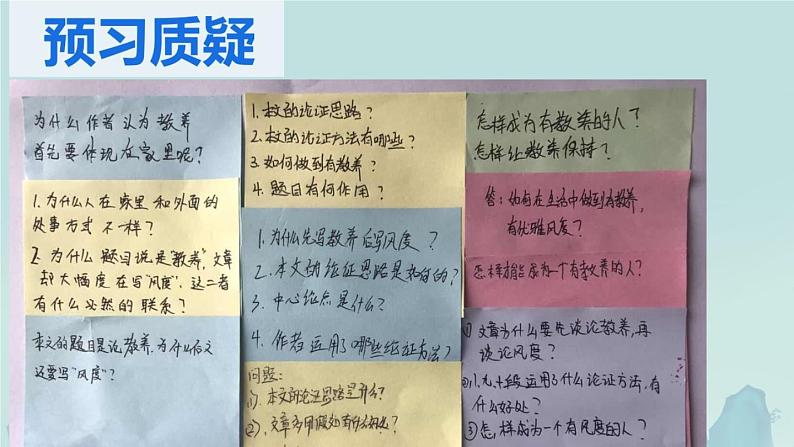 预习质疑
为什么作者认为教养
首先要体现在家里呢？
1.为什么人在家里和外面的
处事方式不一样？
2.为什么题目说是“教养”，文章
却大幅度在写“风度”，这二者
有什么必然的联系？
本文的题目是论教养，为什么后文
还要写“风度”？
1.本文的论证思路？
2.本文的论证方法有哪些？
3.如何做到有教养？
4.题目有何作用？
1.为什么先写教养后写风度？
2.本文的论证思路是如何的？
3.中心论点是什么？
4.作者运用了哪些论证方法？
问题：
①.本文的论证思路是什么？
②.文章多用假处有什么？
怎样成为有教养的人？
怎样让教养保持？
答：如何在生活中做到有教养，
有优雅风度？
怎样才能成为一个有教养的人？
①文章为什么要先谈论教养，再
谈论风度？
②.九、十段运用了什么论证方法，有
什么好处？
③怎样成为一个有风度的人？